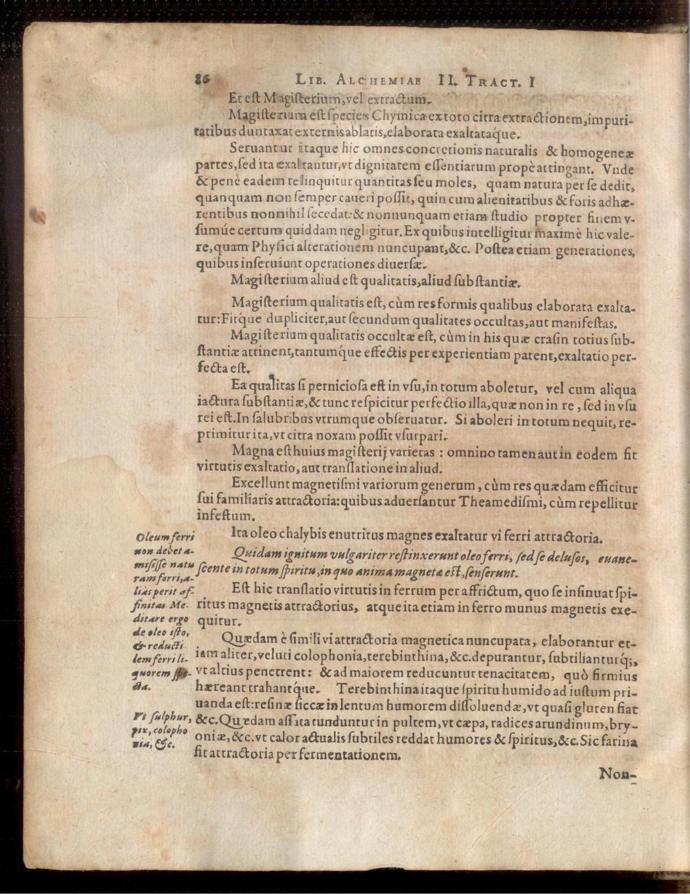 86 LIB. ALCHEMIAE II. TRACT. I
Et est Magisterium, vel extractum.
Magisterium est species Chymica ex toto citra extractionem, impuri-
tatibus duntaxat externis ablatis, elaborata exaltataque.
Seruantur itaque hic omnes concretionis naturalis & homogeneæ
partes, sed ita exaltantur, vt dignitatem essentiarum propè attingant. Vnde
& penè eadem relinquitur quantitas seu moles, quam natura per se dedit,
quanquam non semper caueri possit, quin cum alienitatibus & foris adhæ-
rentibus nonnihil secedat: & nonnunquam etiam studio propter finem v-
sumúe certum quiddam negligitur. Ex quibus intelligitur maximè hic vale-
re, quam Physici alterationem nuncupant, &c. Postea etiam generationes,
quibus inseruiunt operationes diuersæ.
Magisterium aliud est qualitatis, aliud substantiæ.
Magisterium qualitatis est, cùm res formis qualibus elaborata exalta-
tur: Fitque dupliciter, aut secundum qualitates occultas, aut manifestas.
Magisterium qualitatis occultæ est, cùm in his quæ crasin totius sub-
stantiæ attinent, tantumque effectis per experientiam patent, exaltatio per-
fecta est.
Ea qualitas si perniciosa est in vsu, in totum aboletur, vel cum aliqua
iactura substantiæ, & tunc respicitur perfectio illa, quæ non in re, sed in vsu
rei est. In salubribus vtrumque obseruatur. Si aboleri in totum nequit, re-
primitur ita, vt citra noxam possit vsurpari.
Magna est huius magisterij varietas: omnino tamen aut in eodem fit
virtutis exaltatio, aut translatione in aliud.
Excellunt magnetismi variorum generum, cùm res quædam efficitur
sui familiaris attractoria: quibus aduersantur Theamedismi, cùm repellitur
infestum.
Ita oleo chalybis enutritus magnes exaltatur vi ferri attractoria.
Quidam ignitum vulgariter restinxerunt oleo ferri, sed se delusos, euane-
scente in totum spiritu, in quo anima magnetæ est, senserunt.
Est hic translatio virtutis in ferrum per affrictum, quo se insinuat spi-
ritus magnetis attractorius, atque ita etiam in ferro munus magnetis exe-
quitur.
Quædam è simili vi attractoria magnetica nuncupata, elaborantur et-
iam aliter, veluti colophonia, terebinthina, &c. depurantur, subtilianturq;,
vt altius penetrent: & ad maiorem reducuntur tenacitatem, quò firmius
hæreant trahantque. Terebinthina itaque spiritu humido ad iustum pri-
uanda est: resinæ siccæ in lentum humorem dissoluendæ, vt quasi gluten fiat
&c. Quædam assata tunduntur in pultem, vt cæpa, radices arundinum, bry-
oniæ, &c. vt calor actualis subtiles reddat humores & spiritus, &c. Sic farina
fit attractoria per fermentationem.
Non-
Oleum ferri
non debet a-
misisse natu
ram ferri, a-
liàs perit af-
finitas Me-
ditare ergo
de oleo isto,
& reducti
lem ferri li-
quorem
cta.
Vt sulphur,
pix, colopho
nia, &c.